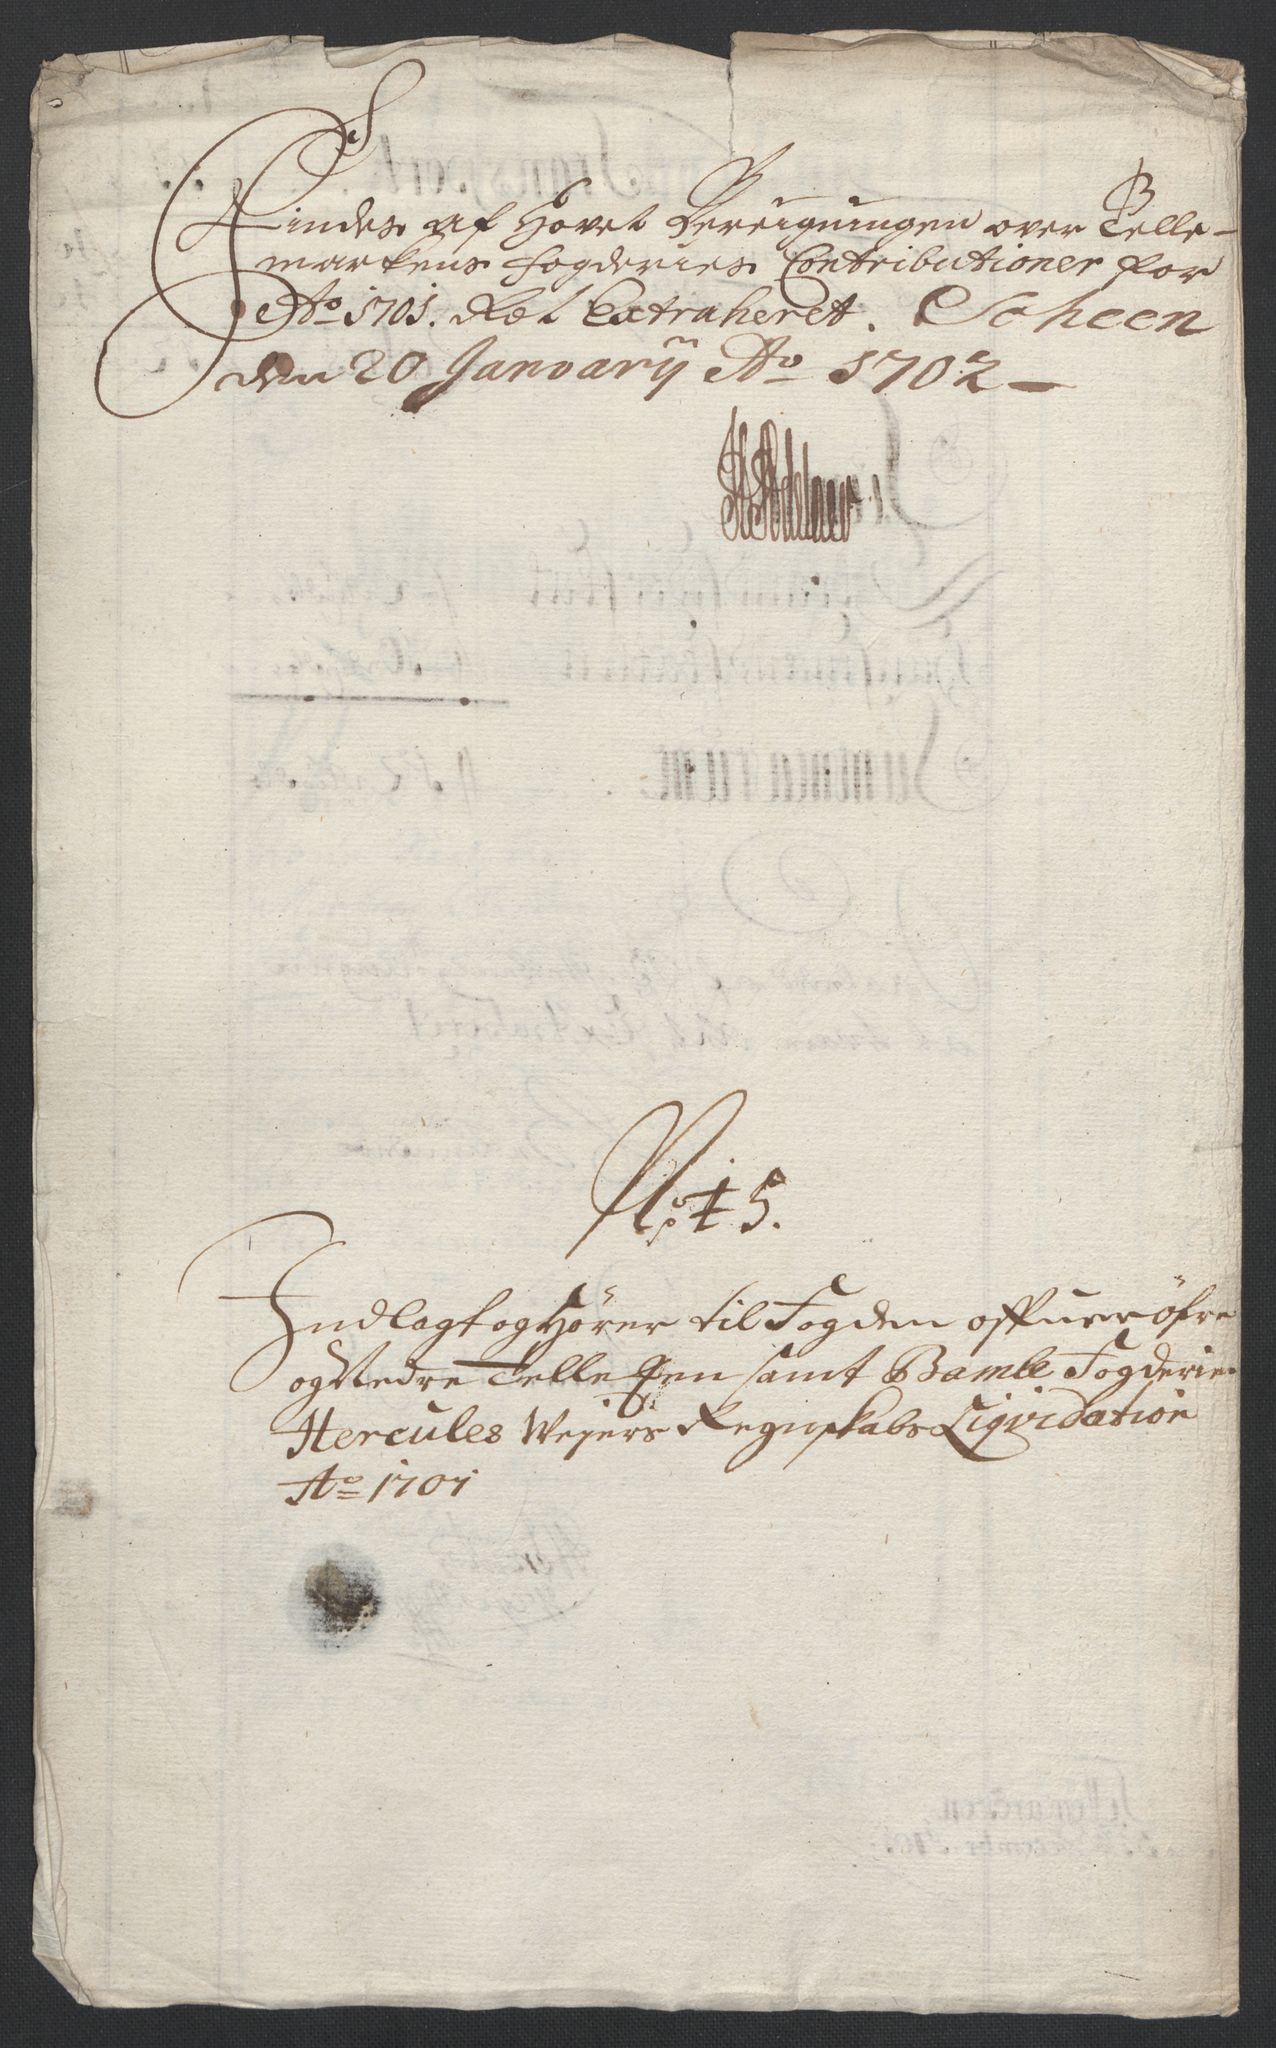 findes af Hovet Bereigningen over Telle-
markens fogderies Contributioner for
Ao 1701. Ret Extraheret. Scheen
den 20 Januarÿ Ao 1702
HAdeler
No: 15.
Indlagt og Hører til Fogden offuer öfre
og Nedre Telle samt Bamle Fogderie
Hercules Weÿers Regnskabs Liqvidation
Ao 1701